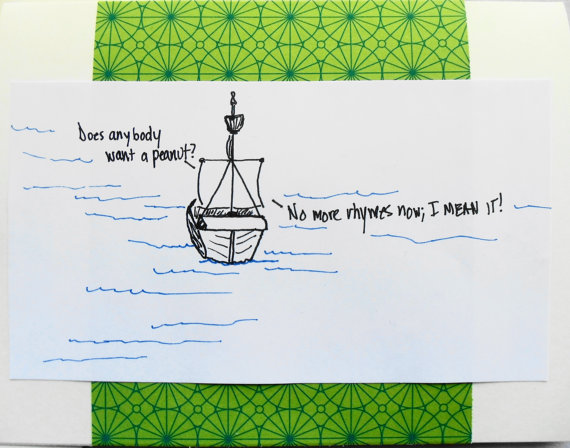 Does anybody
want a peanut?
No more rhymes now; I MEAN IT!